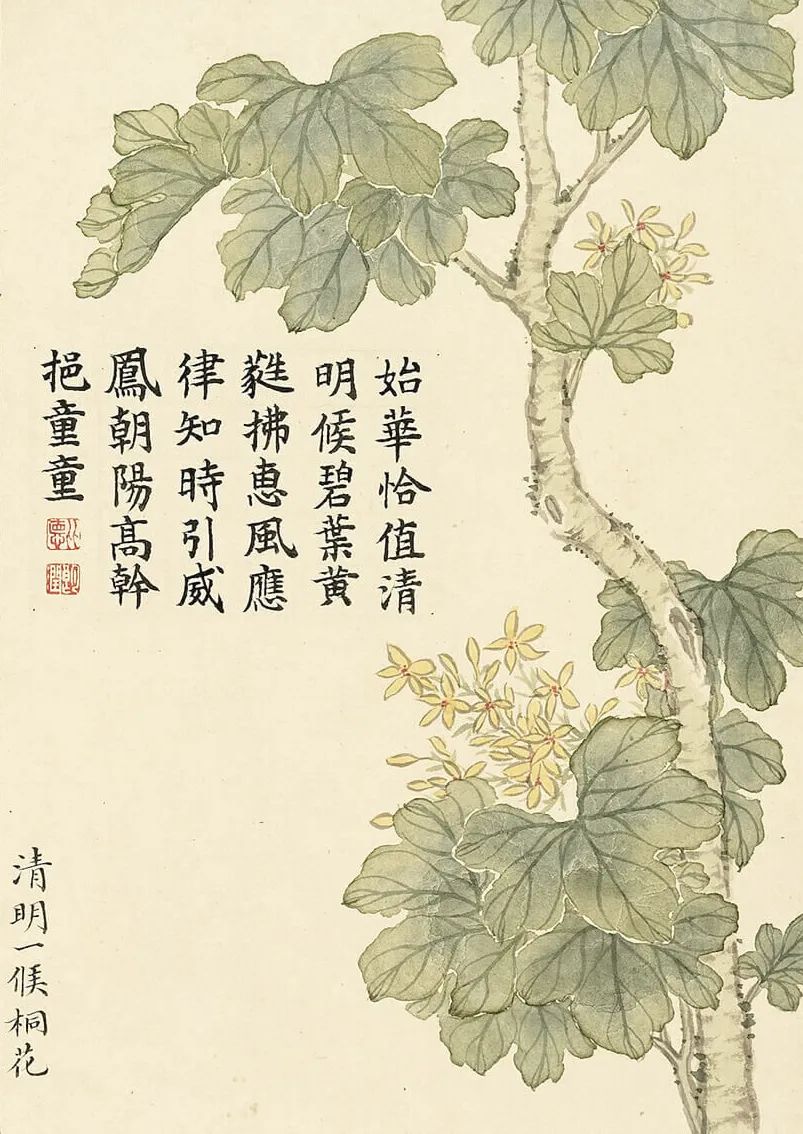 始華恰值清
明候碧葉黄
蕤拂惠風應
律知時引威
鳳朝陽高幹
挹童童
比德
朗潤
清明一候桐花